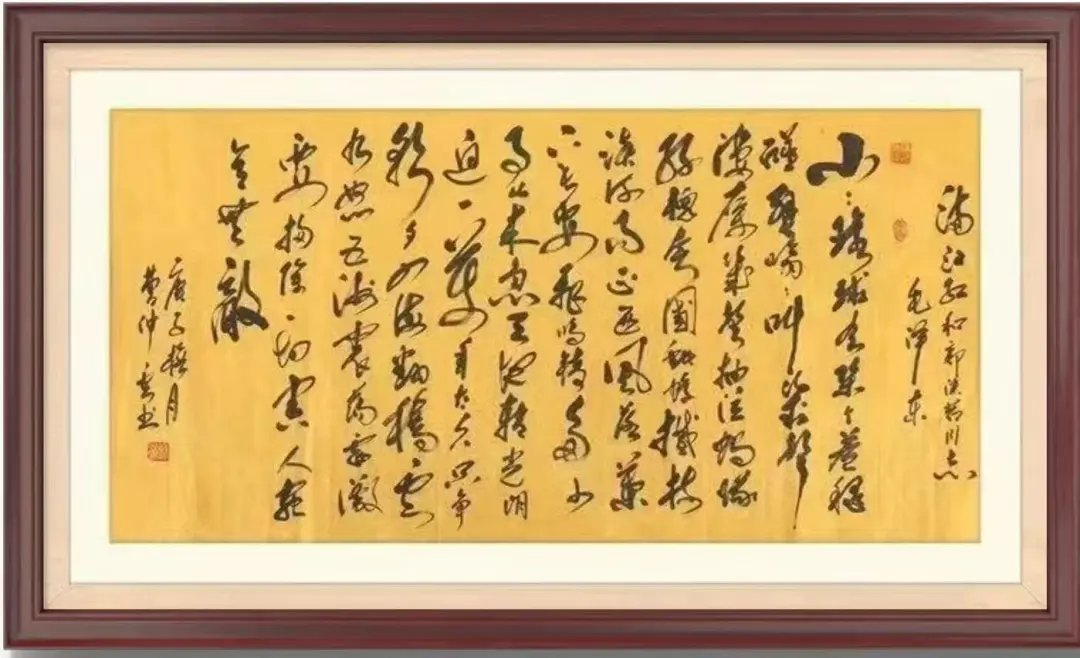 满江红和郭沫若同志
毛泽东
小小寰球有几个苍蝇
碰壁嗡嗡叫几声
凄厉几声抽泣蚂蚁缘
槐夸大国蚍蜉撼树
谈何易正西风落叶
下长安飞鸣镝多少
事从来急天地转光阴
迫一万年太久只争
朝夕四海翻腾云
水怒五洲震荡风雷激
要扫除一切害人虫
全无敌
庚子月
曹仲书